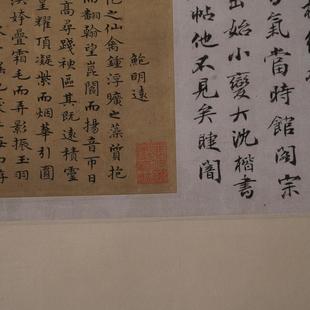 氣當時館閣宗
出始小變大沈楷書
帖他不見矣睫闇
鮑明遠
化之仙禽鍾浮曠之藻質抱
而翻翰望崑閬而揚音帀日
高尋踐神區其既遠積靈
星耀頂凝紫而烟華引圓
洪姱疊霜毛而弄影振玉羽